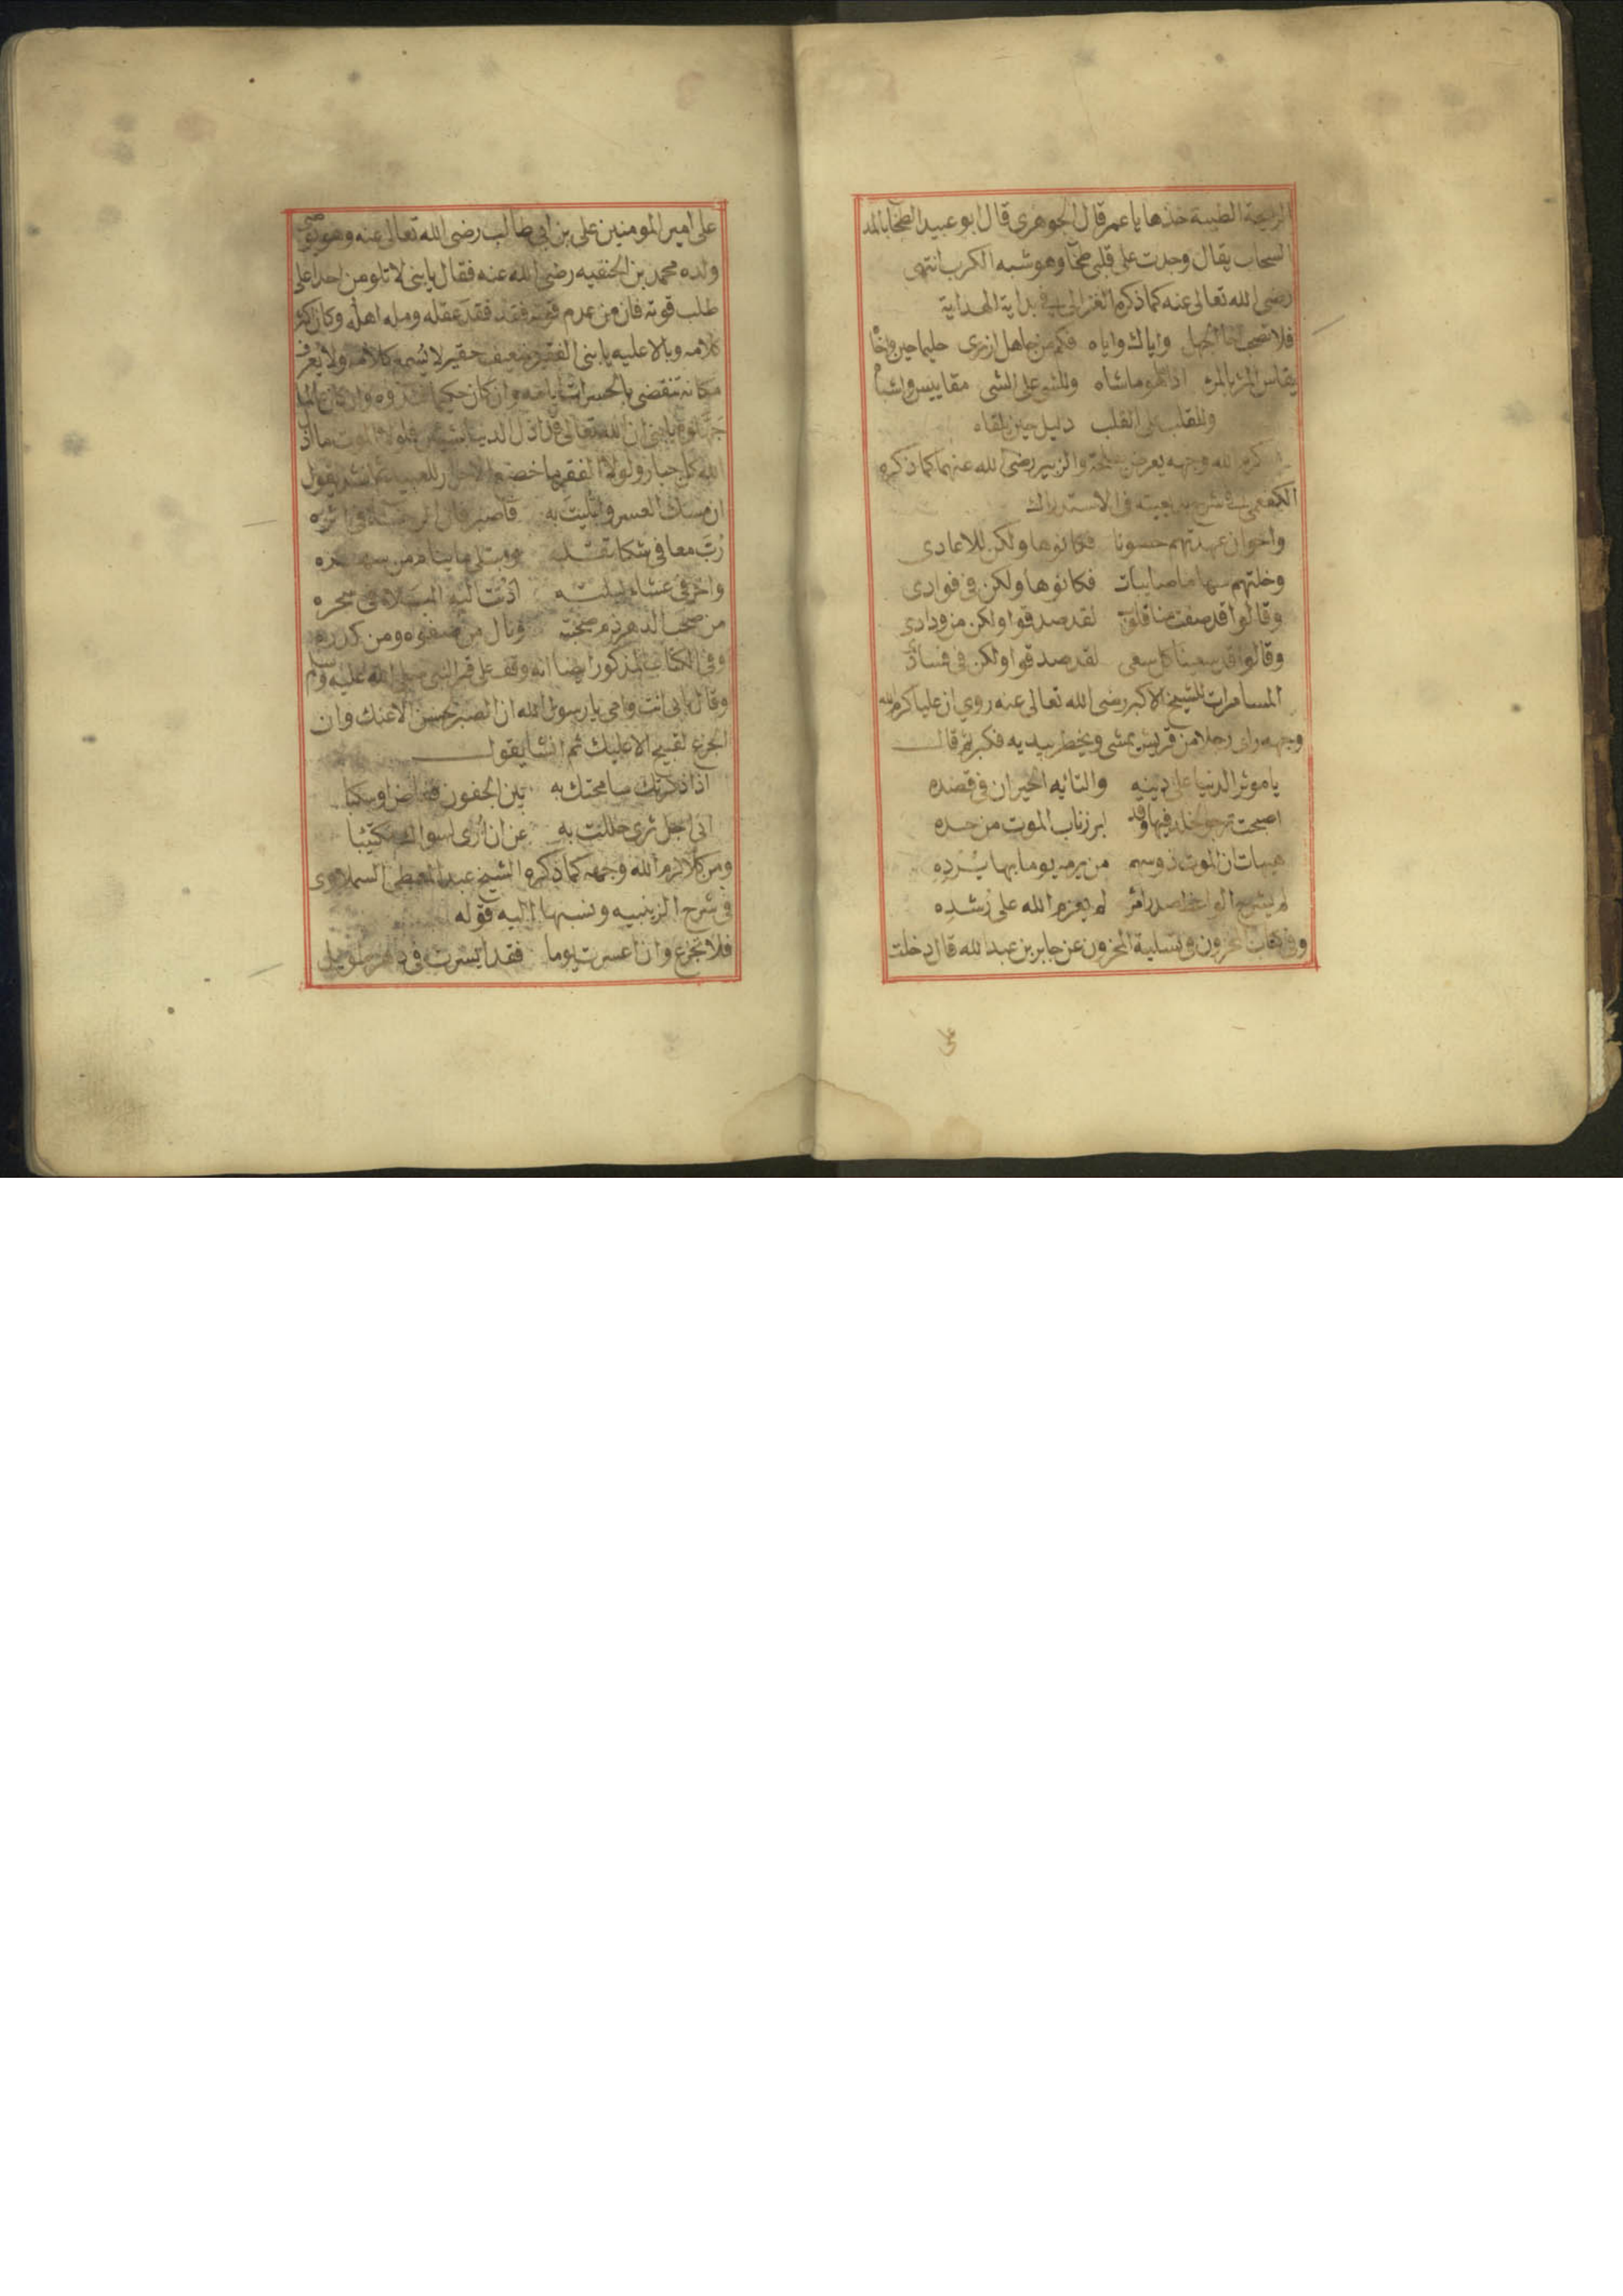 الريحة الطيبة خذها يا عمر قال الجوهري قال ابو عبيد الطخا بالمد
السحاب يقال وجدت على قلبي طخا وهو شبه الكرب انتهى
رضى الله تعالى عنه كما ذكره الغزالى في بداية الهداية
فلا تصحب اخا الجهل واياك واياه فكم من جاهل اردى حليما حين واخاه
يقاس المرء بالمرء اذا ما هو ماشاه وللشى على الشى مقاييس واشباه
وللقلب على القلب دليل حين يلقاه
كرم الله وجهه يعرض بطلحة والزبير رضى الله عنهما كما ذكره
الكفعمى في شرح بديعيته فى الاستدراك
واخوان عهدتهم حسونا فكانوها ولكن للاعادى
وخلتهم سهاما صايبات فكانوها ولكن فى فوادى
وقالوا قد صفت منا قلوب لقد صدقوا ولكن من ودادى
وقالوا قد سعينا كل سعى لقد صدقوا ولكن فى فسادى
المسامرات للشيخ الاكبر رضى الله تعالى عنه روي ان عليا كرم الله
وجهه راى رجلا من قريش يمشى ويخطر بيديه فكبر ثم قال
يا موثر الدنيا على دينه والتايه الحيران فى قصده
اصبحت ترجو الخلد فيها وقد ابرز ناب الموت من حده
هيهات ان الموت ذو سهم من يرمه يوما بها يرده
لم يشرح الواعظ صدر امرء لم يعزم الله على رشده
وفى المحزون فى تسلية المحزون عن جابر بن عبد الله قال دخلت
على
على امير المومنين على بن ابى طالب رضى الله تعالى عنه وهو يوصى
ولده محمد بن الحنفيه رضى الله عنه فقال يا بنى لا تلومن احدا على
طلب قوته فان من عدم قوته فقد فقد عقله ومله اهله وكان كثر
كلامه وبالا عليه يا بنى الفقير ضعيف حقير لا يسمع كلامه ولا يعرف
مكانه تنقضى بالحسرات ايامه وان كان حكيما وان كان عالما
جهلوه يا بنى ان الله تعالى قد اذل الدنيا فلولا الموت ما اذل
الله كل جبار ولولا الفقر ما خضع الاحرار للعبيد ثم انشد يقول
ان مسك العسر وابتليت به فاصبر فان فى اثره
رب معافى شكا تقلبه ومبتلى ما ينام من سهره
واخر فى عشاء ليلته اذنت اليه البلاء فى سحره
من صحب الدهر ذم صحبته ونال من صفوه ومن كدره
وفى الكتاب المذكور ايضا انه وقف على قبر النبى صلى الله عليه وسلم
وقال بابى انت وامى يا رسول الله ان الصبر لحسن الا عنك وان
الجزع لقبيح الا عليك ثم انشا يقول
اذا ذكرتك سامحتك به بين الجفون ففاض وانسكبا
انى اجل ثرى حللت به عن ان ارى لسواك مكتئبا
ومن كلامه كرم الله وجهه كما ذكره الشيخ عبد المعطى السملاوى
فى شرح الزينبيه ونسبها اليه قوله
فلا تجزع وان اعسرت يوما فقد ايسرت فى دهر طويل